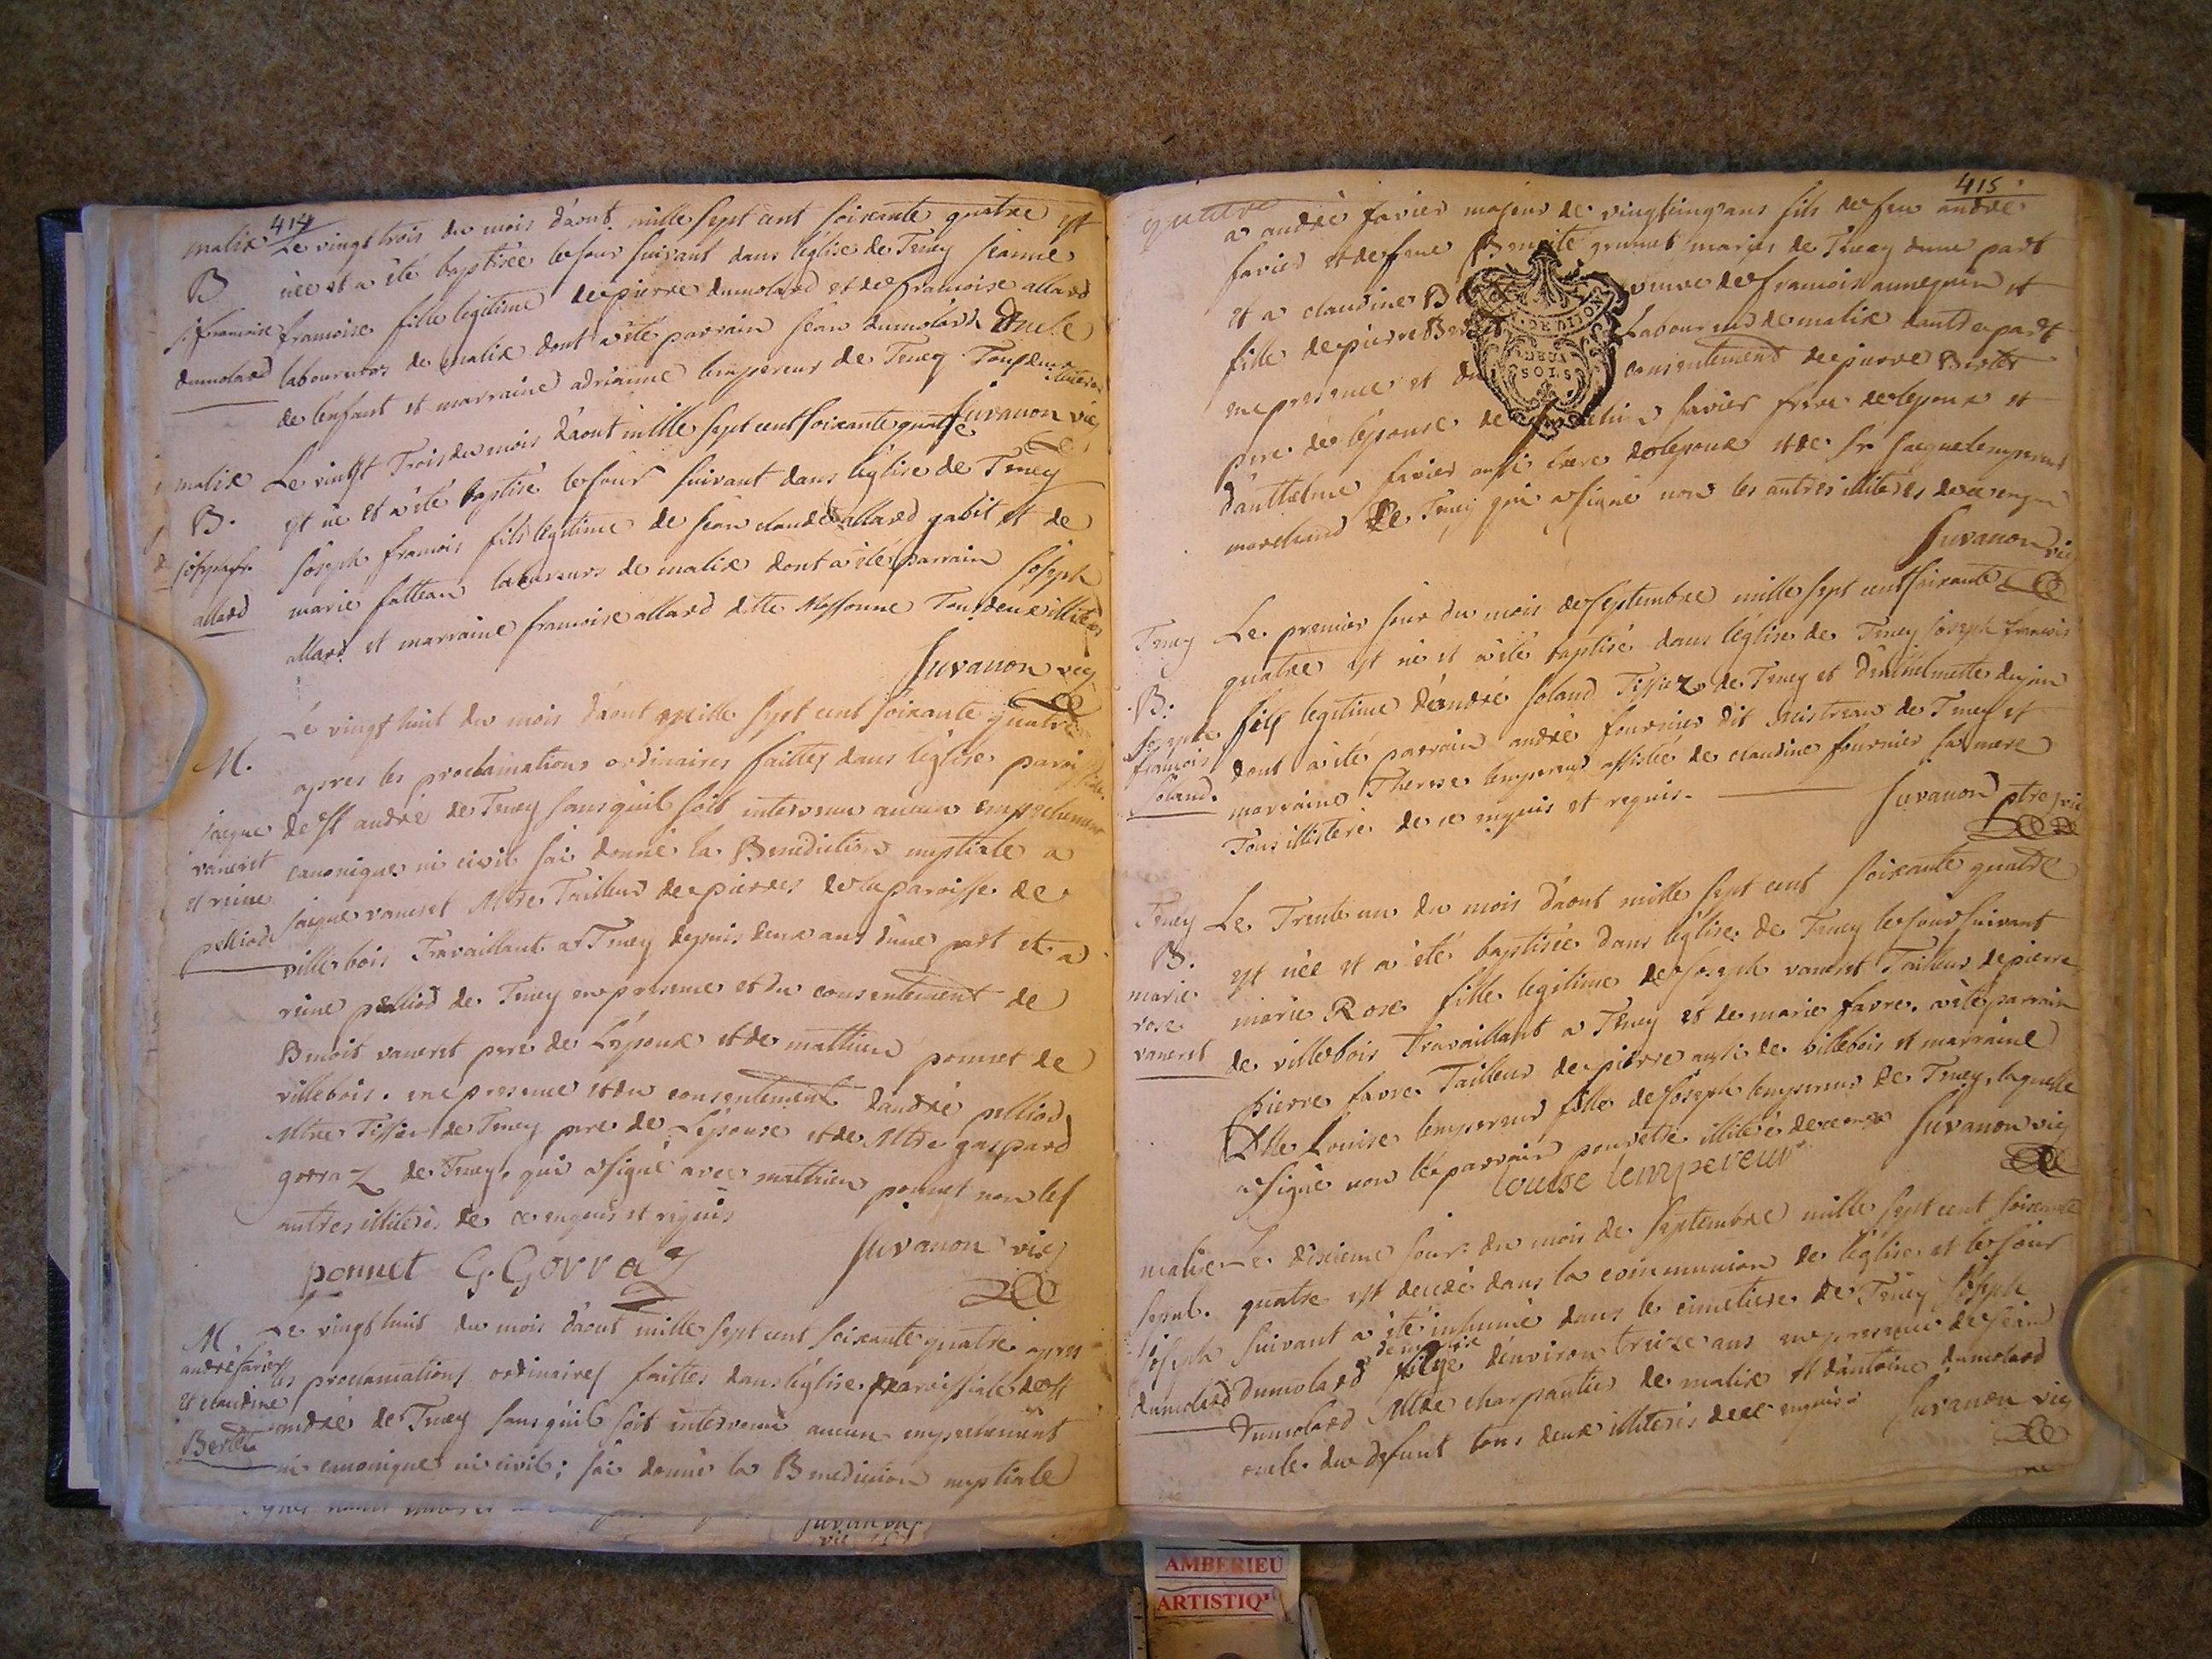 414
malix Le vingt trois du mois d'aout mille sept cent soixante quatre est
B née et a été baptisée le jour suivant dans l'église de Tenay jeanne
j. francoise francoise fille legitime de pierre dumolard et de francoise allard
dumolard laboureurs de malix dont a été parrain jean dumolard oncle
de l'enfant et marraine adrianne lempereur de Tenay Tous deux illiteres
Juvanon vic
malix Le vingt Trois du mois d'aout mille sept cent soixante quatre
B. est né et a été baptisé le jour suivant dans l'église de Tenay
joseph fr. joseph francois fils legitime de jean claude allard gabit et de
allard marie falleau laboureurs de malix dont a été parrain joseph
allard et marraine francoise allard ditte Massonne Tous deux illiteres
Juvanon vic
Le vingt huit du mois d'aout mille sept cent soixante quatre
M. apres les proclamations ordinaires faittes dans l'église paroissiale
jacque de st andré de Tenay sans qu'il soit intervenu aucun empechement
vaneret canonique ni civil jai donné la Benediction nuptiale a
et reine jacque vaneret Mtre Tailleur de pierres de la paroisse de
pelliod villebois Travaillant a Tenay depuis deux ans d'une part et a
reine pelliod de Tenay en presence et du consentement de
Benoit vaneret pere de L'epoux et de mathieu ponnet de
villebois. en presence et du consentement d'andré pelliod
Mtre Tissier de Tenay pere de L'epouse et de Mtre gaspard
gorraz de Tenay, qui a signé avec mathieu ponnet non les
autres illiterés de ce enquis et requis
ponnet G. Gorraz Juvanon vic
M Le vingt huit du mois d'aout mille sept cent soixante quatre apres
andré favier les proclamations ordinaires faittes dans l'église paroissiale de st
et claudine andré de Tenay sans qu'il soit intervenu aucun empechement
Berlet ni canonique ni civil; jai donné la Benediction nuptiale
Juvanon
vic
415
quatre
a andré favier majeur de vingt cinq ans fils de feu andré
favier et de feue Benoite grumet mariés de Tenay d'une part
et a claudine B veuve de francois annequin et
fille de pierre Ber Laboureur de malix d'autre part
en presence et du consentement de pierre Berlet
pere de l'epouse de favier frere de l'epoux et
d'anthelme favier aussi frere de l'epoux et de sr jacque lempereur
marchand de Tenay qui a signé non les autres illiterés de ce enquis
Juvanon vic
Tenay Le premier jour du mois de septembre mille sept cent soixante
B. quatre est né et a été baptisé dans l'église de Tenay joseph francois
joseph fils legitime d'andré joland Tissier de Tenay et d'anthelmette dujon
francois dont a été parrain andré fournier dit de Tenay et
joland. marraine Therese lempereur assistée de claudine fournier sa mere
Tous illiteré de ce enquis et requis. Juvanon ptre vic
Tenay Le Trente un du mois d'aout mille sept cent soixante quatre
B. est née et a été baptisée dans l'église de Tenay le jour suivant
marie marie Rose fille legitime de joseph vaneret Tailleur de pierre
rose de villebois Travaillant a Tenay et de marie favre. a été parrain
vaneret pierre favre Tailleur de pierre aussi de villebois et marraine
Dlle Louise lempereur fille de joseph lempereur de Tenay, laquelle
a signé non le parrain pour etre illiteré de ce enquis Juvanon vic
louise lempereur
malix Le dixieme jour du mois de septembre mille sept cent soixante
sepul. quatre est decedé dans la communion de l'église et le jour
joseph suivant a été inhumé dans le cimetiere de Tenay joseph
dumolard dumolard de malix agé d'environ treize ans en presence de jean
dumolard Mtre charpantier de malix et d'antoine dumolard
oncle du defunt tous deux illiterés de ce enquis Juvanon vic
DEUX
SOLS
AMBERIEU
ARTISTIQ